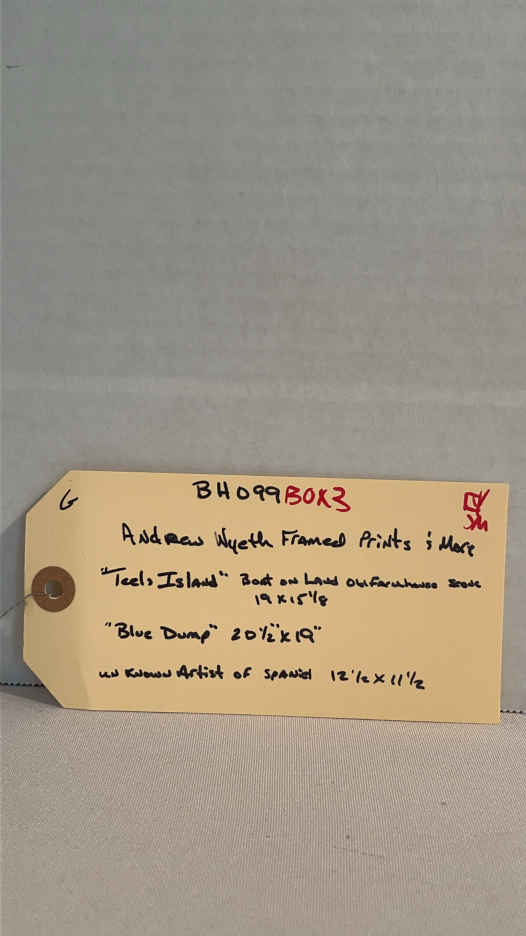 G
BH099 BOX3
SM
Andrew Wyeth Framed Prints & More
"Teels Island" Boat on Land Old Farmhouse Scene
19 x 15 1/8
"Blue Dump" 20 1/2" x 19"
unknown Artist of Spaniel 12 1/2 x 11 1/2